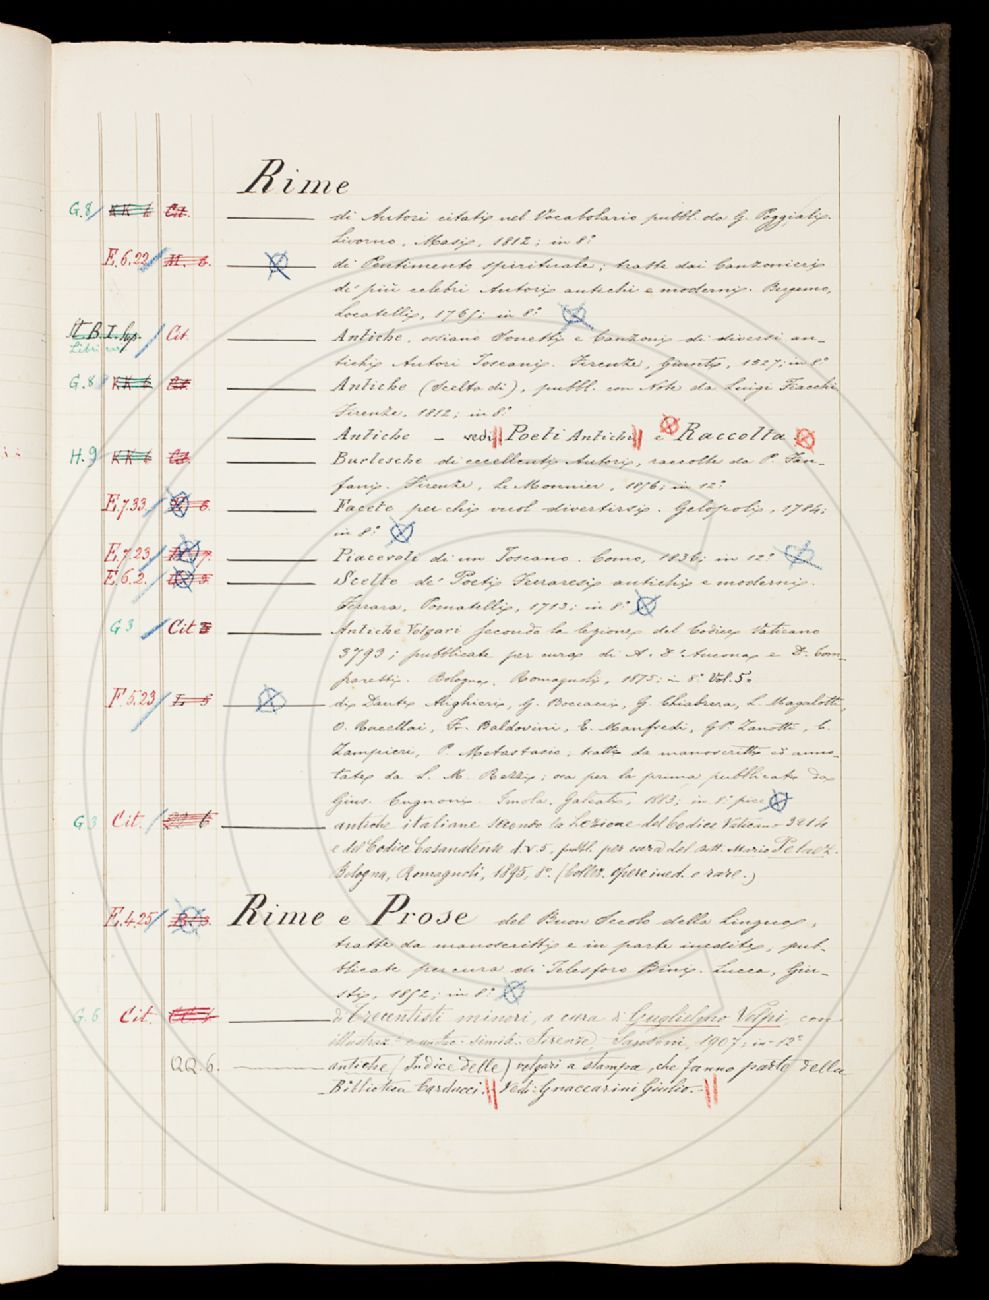 Rime
G.8 KK 6 Cit. di Autori citati nel Vocabolario pubbl. da G. Poggiali.
Livorno, Masi, 1812; in 8º
E.6.22 M. 6. di Pentimento spirituale; tratte dai Canzonieri
de' più celebri Autori antichi e moderni. Bergamo,
Locatelli, 1765; in 8º
Cit. Antiche, ossiano Sonetti e Canzoni di diversi an-
Libri
tichi Autori Toscani. Firenze, Giunti, 1527, in 8º
G.8 KK 6 Cit. Antiche (Scelta di), pubbl. con Note da Luigi Fiacchi
Firenze, 1812; in 8º
Antiche – vedi Poeti Antichi e Raccolta
H.9 KK 6 Cit. Burlesche di eccellenti Autori, raccolte da P. Fan-
fani. Firenze, Le Monnier, 1856; in 12º
E.7.33 6. Facete per chi vuol divertirsi. Gelopoli, 1784;
in 8º
E.7.23 Piacevoli di un Toscano. Como, 1836; in 12º
E.6.2. Scelte de' Poeti Ferraresi antichi e moderni.
Ferrara, Pomatelli, 1713; in 8º
G 3 Cit Antiche Volgari secondo la lezione del Codice Vaticano
3793; pubblicate per cura di A. D'Ancona e D. Com-
paretti. Bologna, Romagnoli, 1875; in 8º Vol. 5.
F.5.23 di Dante Alighieri, G. Boccacci, G. Chiabrera, L. Magalotti,
O. Rucellai, Fr. Baldovini, E. Manfredi, GP. Zanotti, C.
Zampieri, P. Metastasio; tratte da manoscritti ed anno-
tate da L. M. Rezzi; ora per la prima pubblicate da
Gius. Cugnoni. Imola, Galeati, 1883; in 8º picc.
G 3 Cit. antiche italiane secondo la Lezione del Codice Vaticano 3214
e del Codice Casanatense d.v.5. pubbl. per cura del dott. Mario Pelaez.
Bologna, Romagnoli, 1895, 8º. (Collez. Opere ined. e rare.)
E.4.25 Rime e Prose del Buon Secolo della Lingua,
tratte da manoscritti e in parte inedite, pub-
blicate per cura di Telesforo Bini. Lucca, Giu-
sti, 1852; in 8º
G.6 Cit. di Trecentisti minori, a cura di Guglielmo Volpi, con
Firenze, Sansoni, 1907; in 12º
QQ. 6. antiche (Indice delle) volgari a stampa, che fanno parte della
Biblioteca Carducci. Vedi: Gnaccarini Giulio.